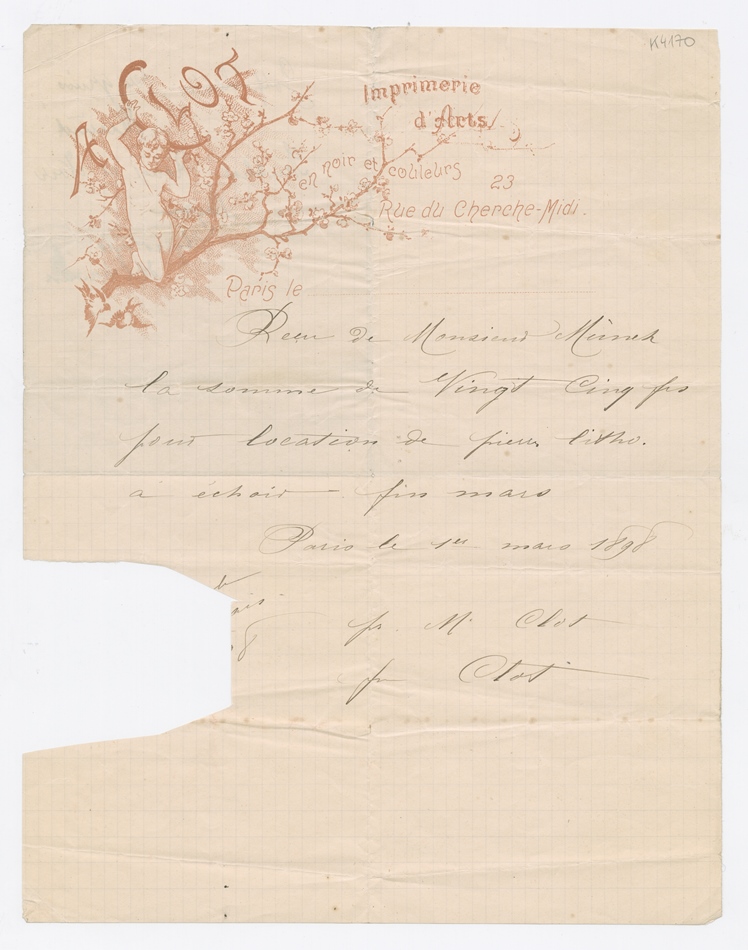 K4170
A CLOT
Imprimerie
d'Arts
en noir et couleurs
23
Rue du Cherche-Midi.
Paris le
Recu de Monsieur Münch
la somme de Vingt Cinq frs
pour location de pierre litho.
a échoir fin mars
Paris le 1er mars 1898
8
pr. Mr Clot
Clot